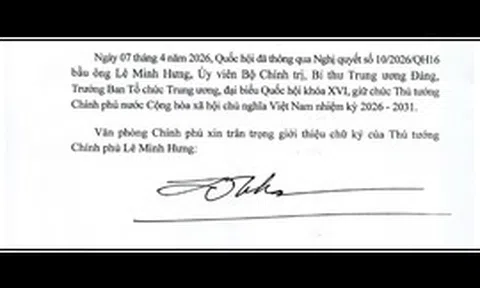 Ngày 07 tháng 4 năm 2026, Quốc hội đã thông qua Nghị quyết số 10/2026/QH16
bầu ông Lê Minh Hưng, Ủy viên Bộ Chính trị, Bí thư Trung ương Đảng,
Trưởng Ban Tổ chức Trung ương, đại biểu Quốc hội khóa XVI, giữ chức Thủ tướng
Chính phủ nước Cộng hòa xã hội chủ nghĩa Việt Nam nhiệm kỳ 2026 - 2031.
Văn phòng Chính phủ xin trân trọng giới thiệu chữ ký của Thủ tướng
Chính phủ Lê Minh Hưng: